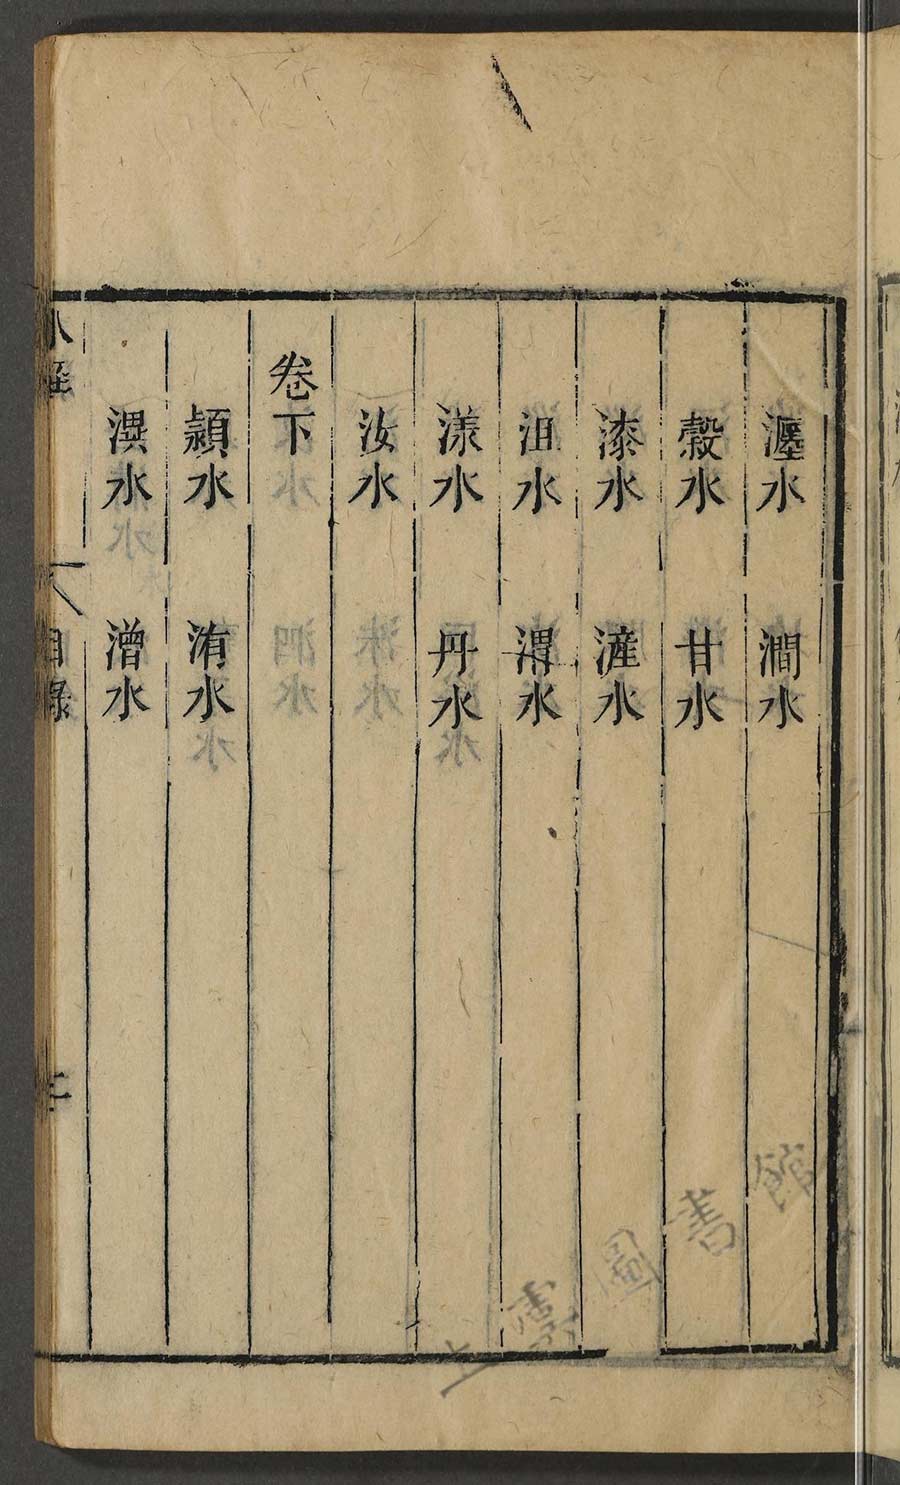 瀍水 澗水
穀水 甘水
漆水 滻水
沮水 㵋水
漾水 丹水
汝水
卷下
潁水 洧水
潩水 潧水
水經 目錄 二